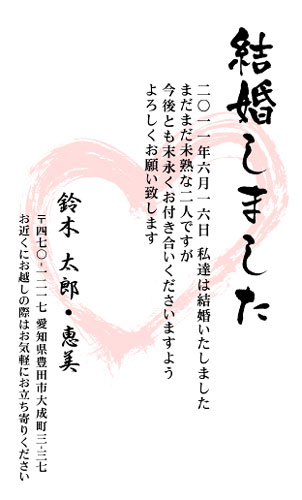 結婚しました
二〇一一年六月一六日 私達は結婚いたしました
まだまだ未熟な二人ですが
今後とも末永くお付き合いくださいますよう
よろしくお願い致します
鈴木 太郎・恵美
〒四七〇-一二一七 愛知県豊田市大成町三-三七
お近くにお越しの際はお気軽にお立ち寄りください